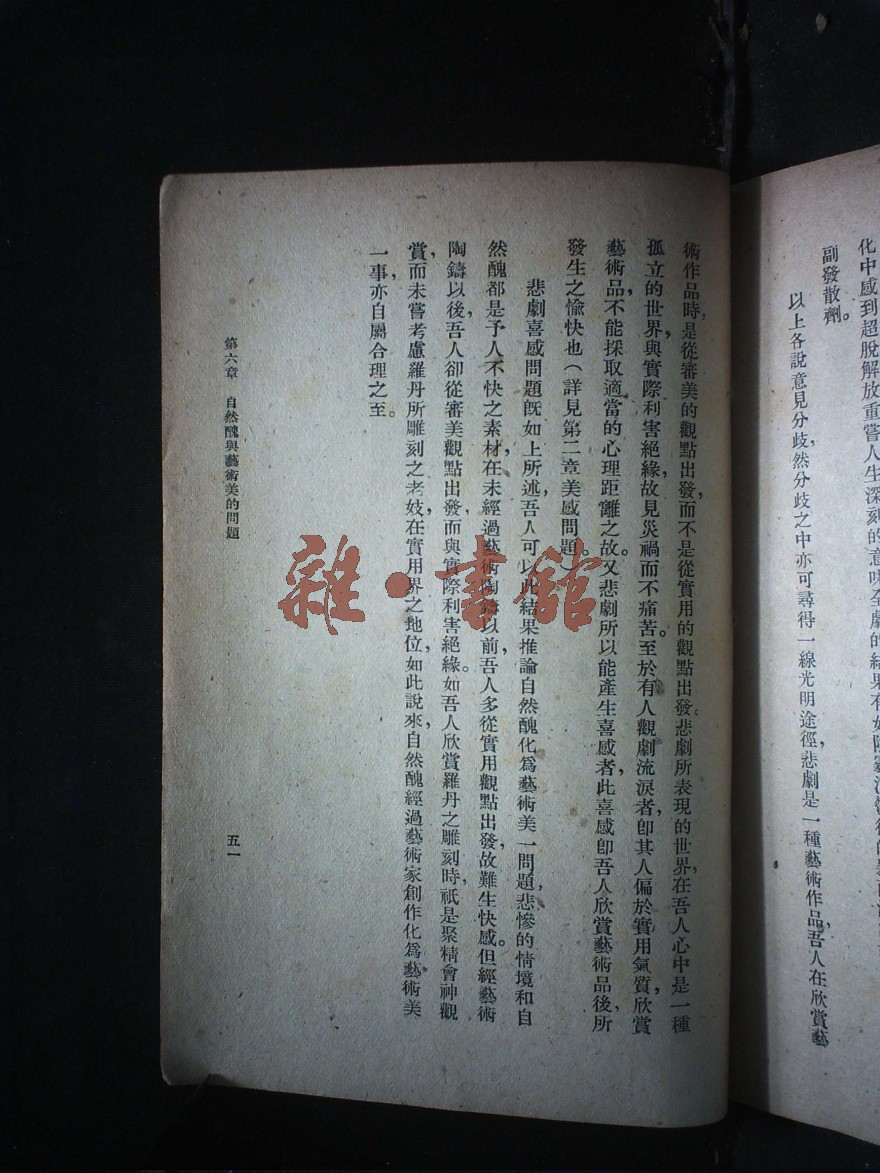 化中感到超脫解放重嘗人生深刻的意味全劇的結果有如
副發散劑。
以上各說意見分歧，然分歧之中亦可尋得一線光明途徑，悲劇是一種藝術作品，吾人在欣賞藝
術作品時，是從審美的觀點出發，而不是從實用的觀點出發。悲劇所表現的世界，在吾人心中是一種
孤立的世界，與實際利害絕緣，故見災禍而不痛苦。至於有人觀劇流淚者，卽其人偏於實用氣質，欣賞
藝術品，不能採取適當的心理距離之故。又悲劇所以能產生喜感者，此喜感卽吾人欣賞藝術品後，所
發生之愉快也（詳見第二章美感問題。）
悲劇喜感問題旣如上所述，吾人可以此結果推論自然醜化爲藝術美一問題，悲慘的情境和自
然醜都是予人不快之素材，在未經過藝術陶鑄以前，吾人多從實用觀點出發，故難生快感。但經藝術
陶鑄以後，吾人卻從審美觀點出發，而與實際利害絕緣。如吾人欣賞羅丹之雕刻時，祇是聚精會神觀
賞，而未嘗考慮羅丹所雕刻之老妓，在實用界之地位，如此說來，自然醜經過藝術家創作化爲藝術美
一事，亦自屬合理之至。
第六章　自然醜與藝術美的問題
五一
雜·書館